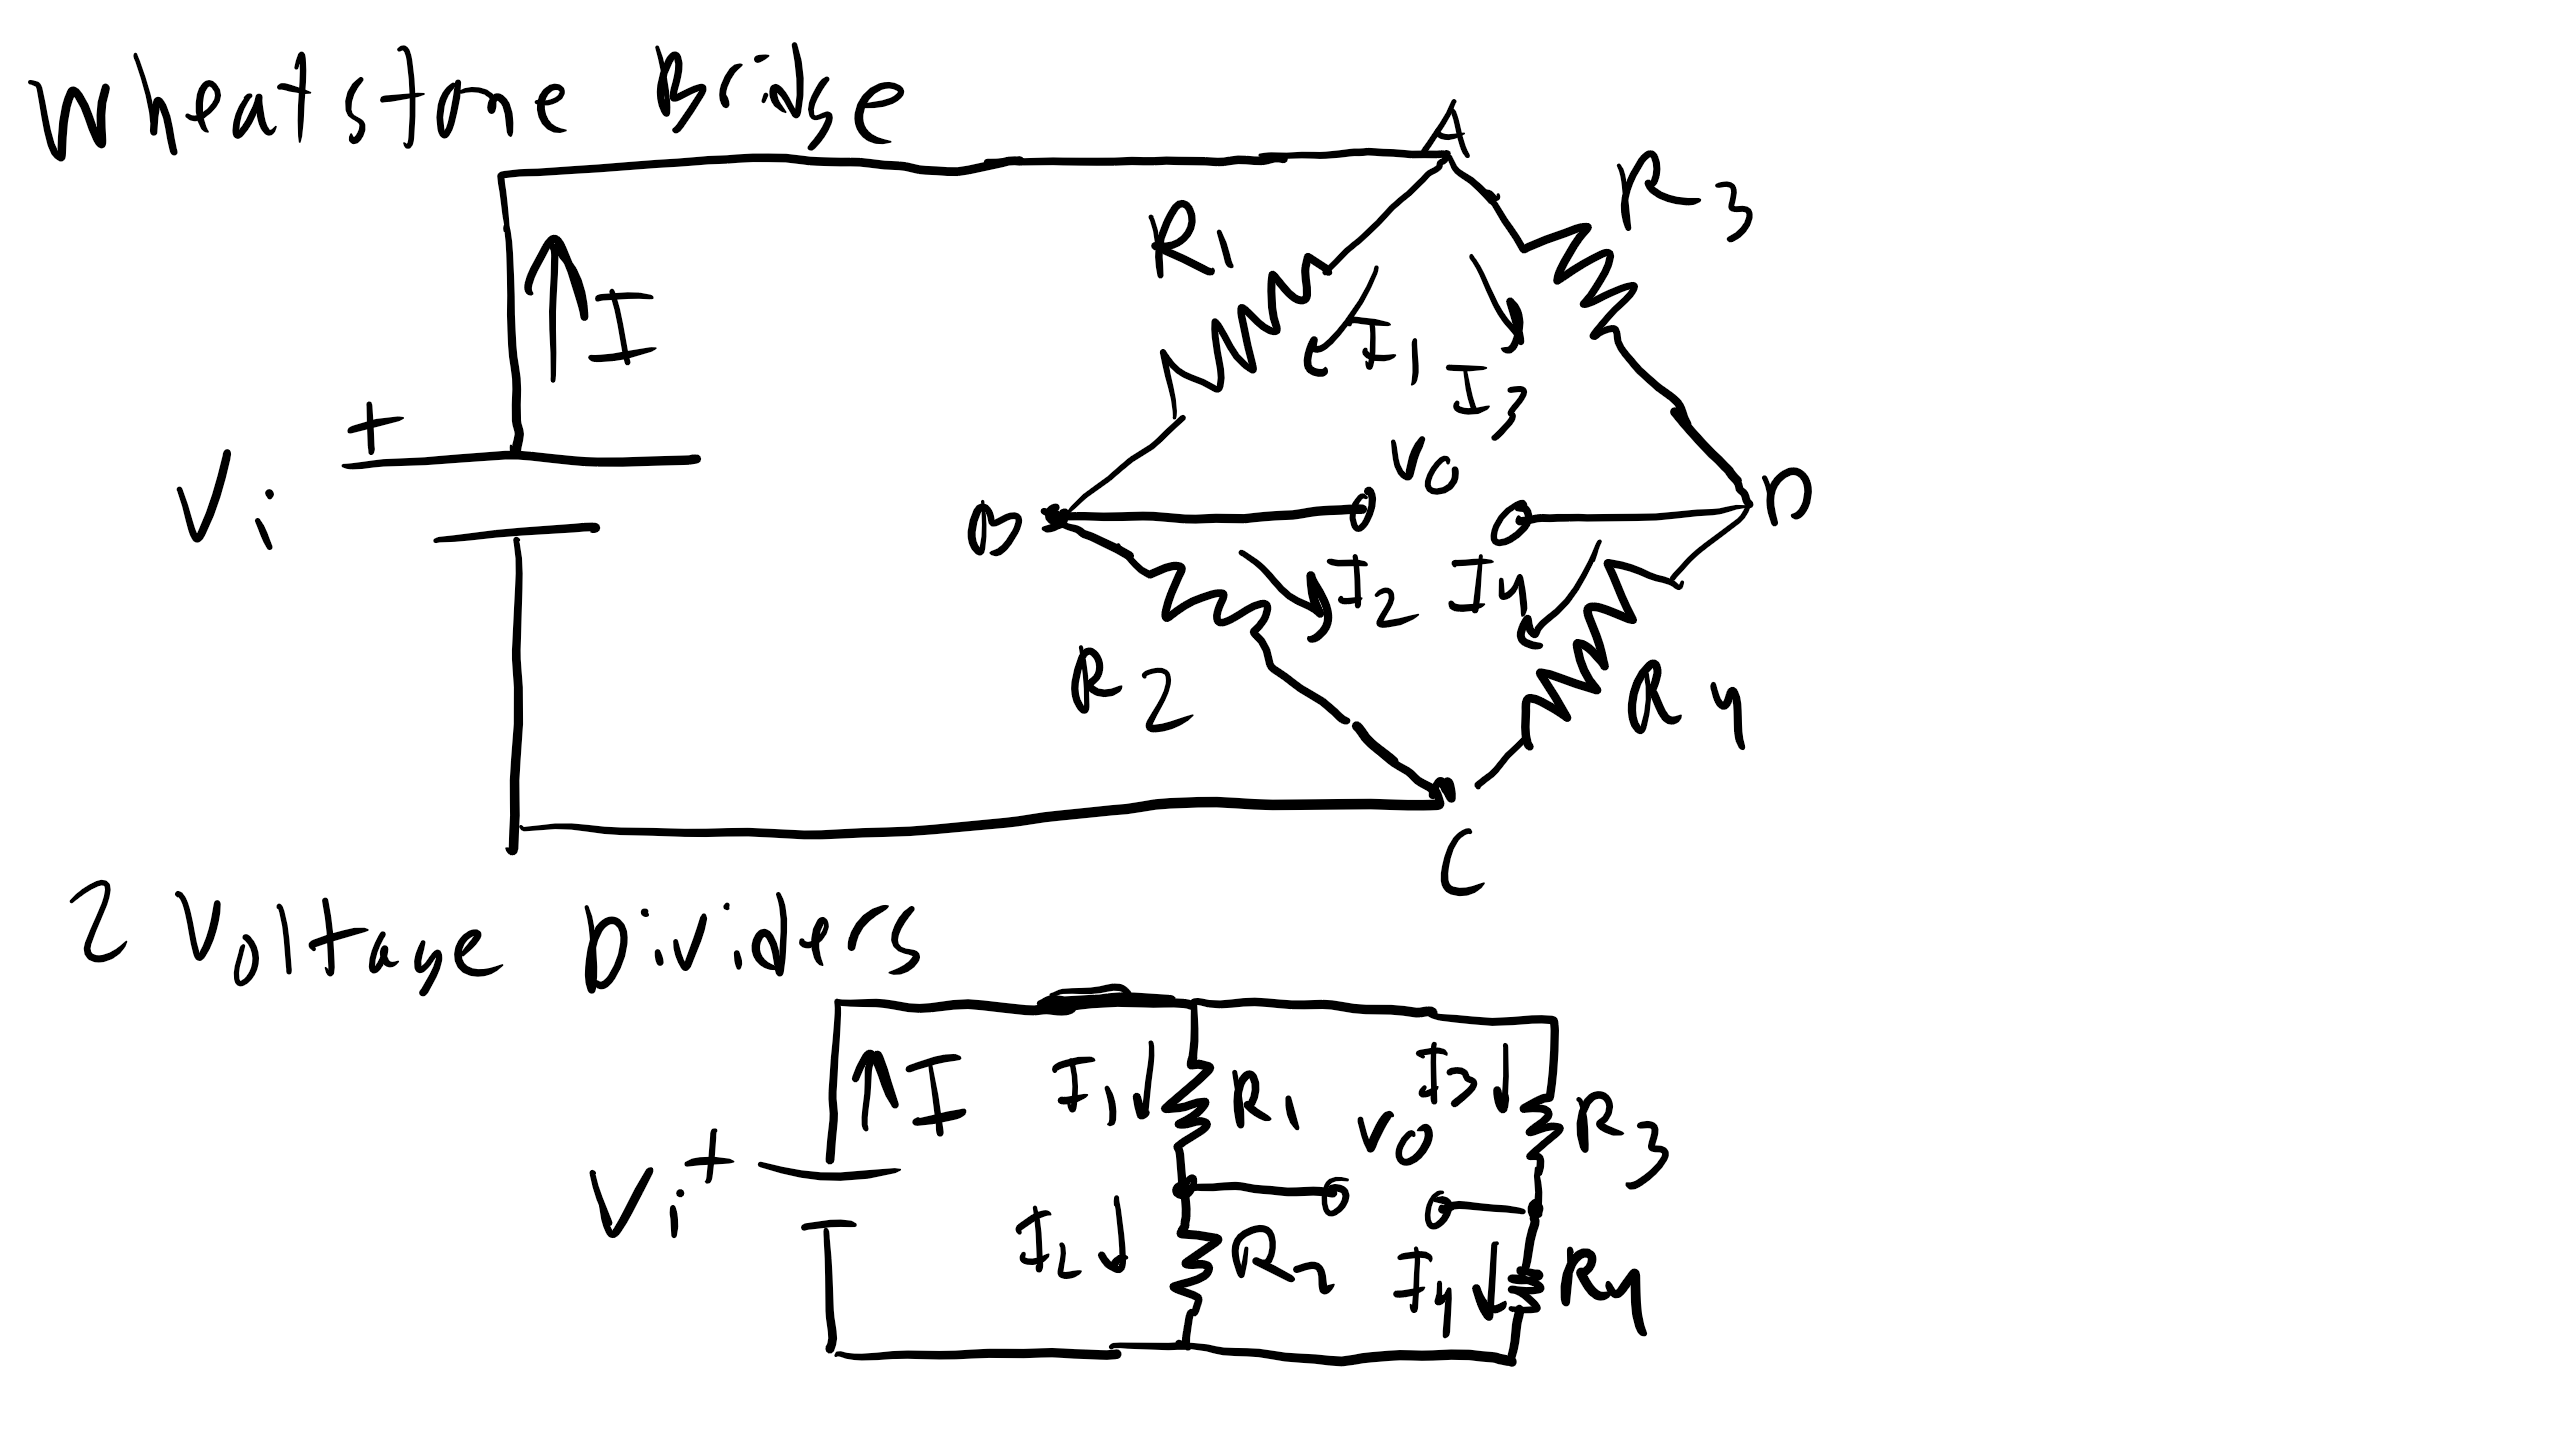 Wheatstone Bridge
A
R3
R1
I
I1
I3
+
Vi
V0
B
D
I2
I4
R2
R4
C
2 Voltage Dividers
I
I1
R1
I3
R3
V0
Vi
+
I2
R2
I4
R4